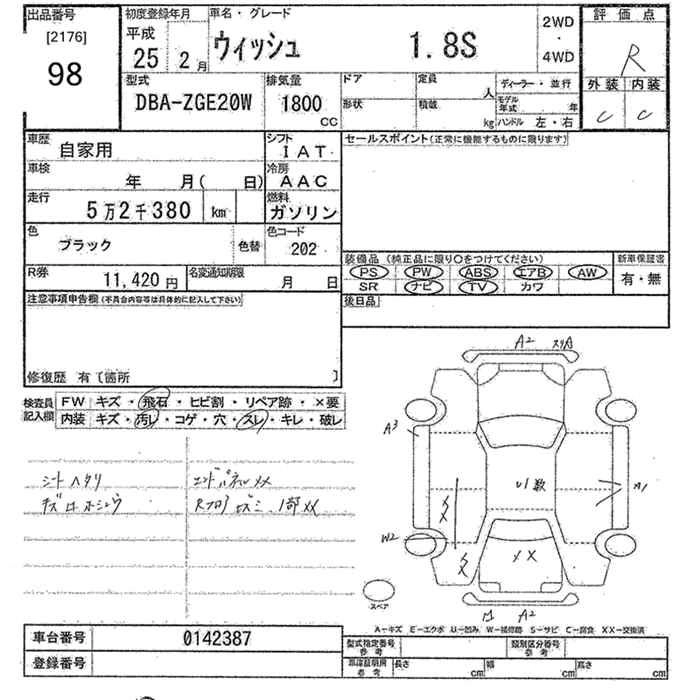 出品番号
[2176]
98
初度登録年月
平成
25 2月
車名・グレード
ウィッシュ 1.8S
2WD
・
4WD
評価点
R
外装 内装
C C
型式
DBA-ZGE20W
排気量
1800
CC
ドア
形状
定員
人
積載
kg
ディーラー・並行
モデル年式 年
ハンドル 左・右
車歴
自家用
シフト
IAT
車検
年 月( 日)
冷房
AAC
走行
5万2千380 km
燃料
ガソリン
色
ブラック
色替
色コード
202
R券
11,420円
名変通知期限
月 日
セールスポイント(正常に機能するものに限ります)
装備品(純正品に限り○をつけてください)
PS PW ABS エアB AW
SR ナビ TV カワ
新車保証書
有・無
後日品
注意事項申告欄(不具合内容等は具体的に記入して下さい)
修復歴 有〔箇所 〕
検査員
記入欄
FW キズ・飛石・ヒビ割・リペア跡・×要
内装 キズ・汚レ・コゲ・穴・スレ・キレ・破レ
シートヘタリ
エンドパネルXX
A2
A3
U1数
A1
W2
XX
XX
XX
A2
スペア
A-キズ E-エクボ U-凹み W-補修跡 S-サビ C-腐食 XX-交換済
車台番号 0142387
登録番号
型式指定番号
参考
類別区分番号
参考
車庫証明用
参考
長さ cm 幅 cm 高さ cm